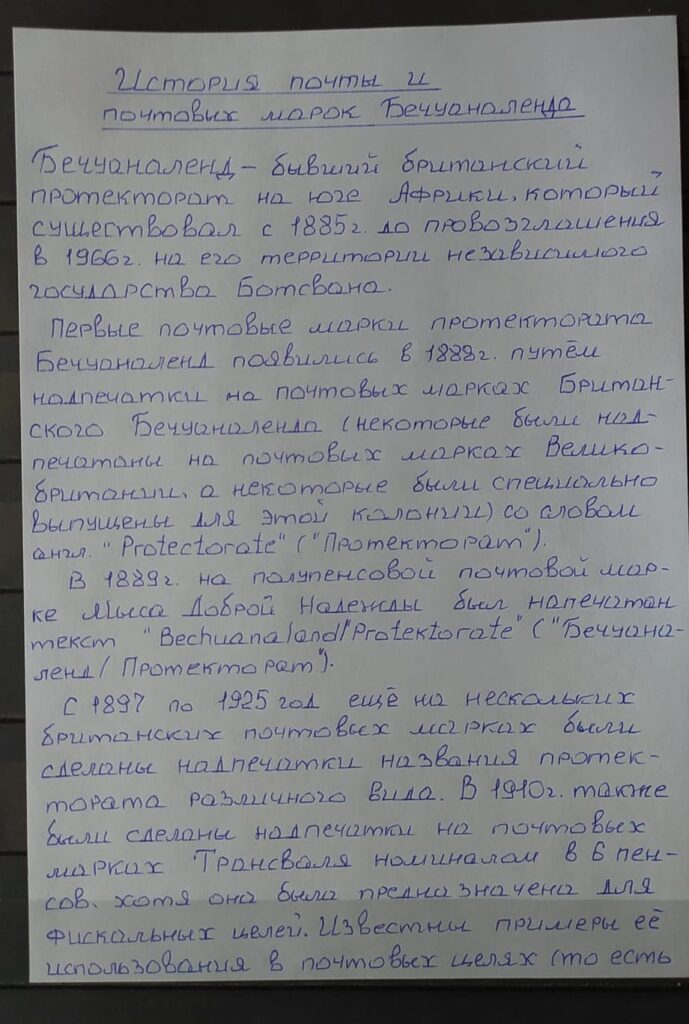 История почты и
почтовых марок Бечуаналенда
Бечуаналенд – бывший британский
протекторат на юге Африки, который
существовал с 1885г. до провозглашения
в 1966г. на его территории независимого
государства Ботсвана.
Первые почтовые марки протектората
Бечуаналенд появились в 1888г. путём
надпечатки на почтовых марках Британ-
ского Бечуаналенда (некоторые были над-
печатаны на почтовых марках Велико-
британии, а некоторые были специально
выпущены для этой колонии) со словом
англ. "Protectorate" ("Протекторат").
В 1889г. на полупенсовой почтовой мар-
ке Мыса Доброй Надежды был напечатан
текст "Bechuanaland/Protektorate" ("Бечуана-
ленд/ Протекторат").
С 1897 по 1925 год ещё на нескольких
британских почтовых марках были
сделаны надпечатки названия протек-
тората различного вида. В 1910г. также
были сделаны надпечатки на почтовых
марках Трансваля номиналом в 6 пен-
сов, хотя она была предназначена для
фискальных целей. Известны примеры её
использования в почтовых целях (то есть